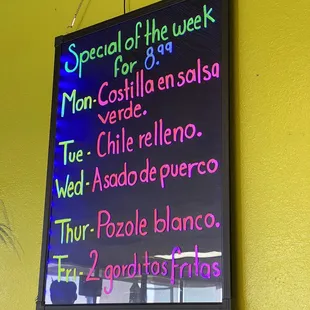 Special of the week
for 8.99
Mon-Costilla en salsa
verde.
Tue - Chile relleno.
Wed-Asado de puerco
Thur-Pozole blanco.
Fri-2 gorditos fritas